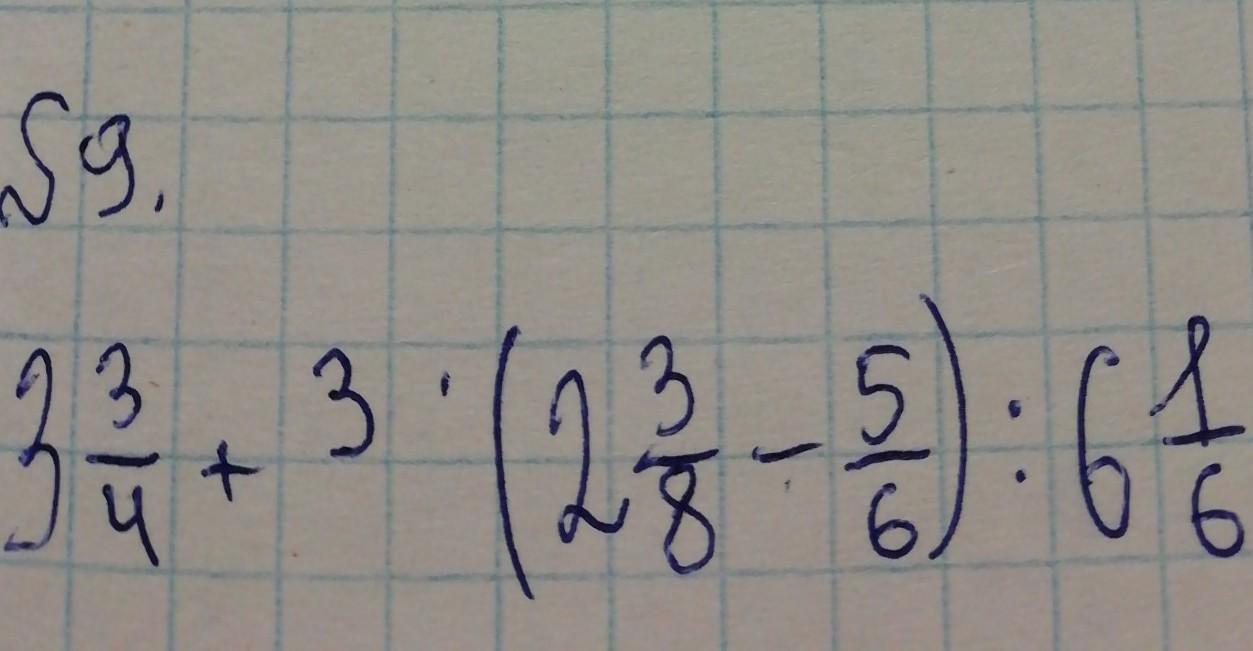 №9.
3 3/4 + 3 · (2 3/8 - 5/6) : 6 1/6